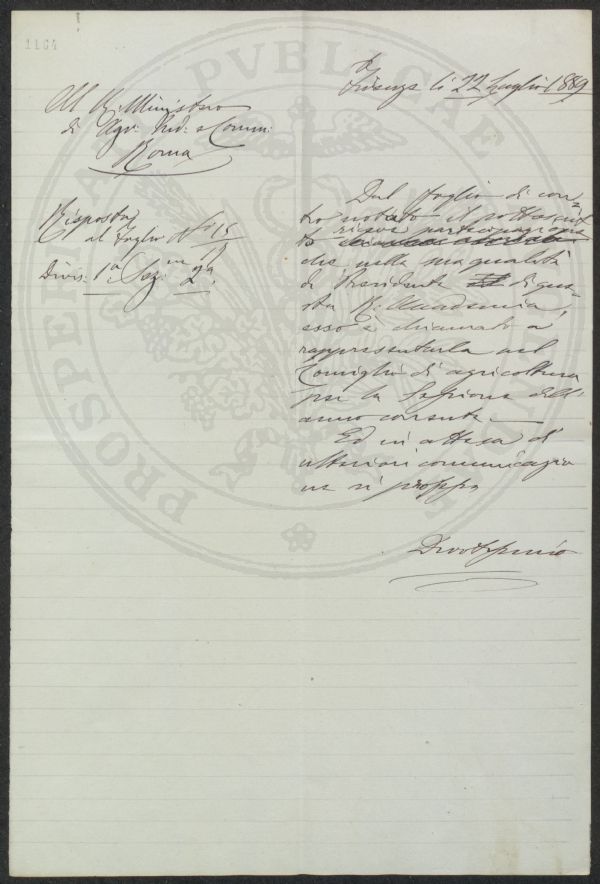 1164
Firenze li 22 Luglio 1889
Al R. Ministero
di Agr. Ind. e Comm.
Roma
Risposta
al foglio N° 15
Divis. 1ª Sez. 2ª
Dal foglio di con-
tro notato il sottoscrit-
to riceve partecipazione
che nella sua qualità
di Presidente di que-
sta R. Accademia,
esso è chiamato a
rappresentarla nel
Consiglio di agricoltura
per la Sessione dell'
anno corrente.
Ed in attesa di
ulteriori comunicazio
ne si
PROSPERITATI PVBLICAE